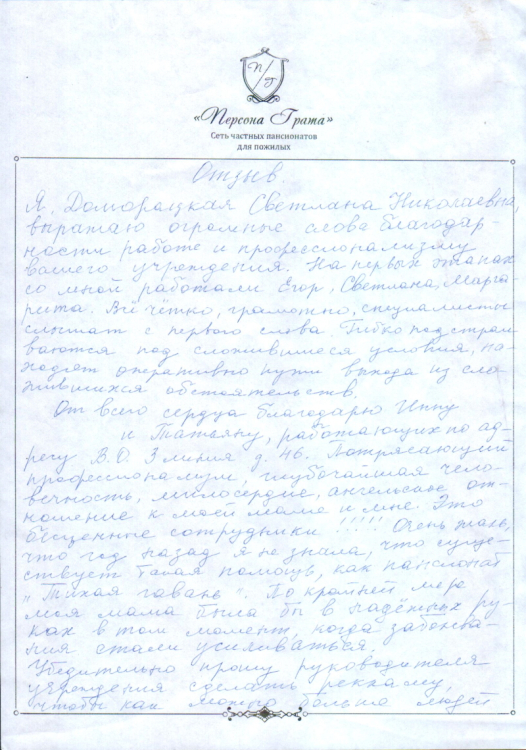 П/Г
«Персона Грата»
Сеть частных пансионатов
для пожилых
Отзыв.
Я, Доморацкая Светлана Николаевна,
выражаю огромные слова благодар-
ности работе и профессионализму
вашего учреждения. На первых этапах
со мной работали Егор, Светлана, Марга-
рита. Всё чётко, грамотно, специалисты
слышат с первого слова. Гибко подстраи
ваются под сложившиеся условия, на-
ходят оперативно пути выхода из сло-
жившихся обстоятельств.
От всего сердца благодарю Инну
и Татьяну, работающих по ад-
ресу В.О. 3 линия д. 46. Потрясающий
профессионализм, глубочайшая чело-
вечность, милосердие, ангельское от-
ношение к моей маме и мне. Это
бесценные сотрудники !!!!! Очень жаль,
что год назад я не знала, что суще-
ствует такая помощь, как пансионат
„Тихая гавань". По крайней мере
моя мама была бы в надёжных ру-
ках в том момент, когда заболева-
ния стали усиливаться.
Убедительно прошу руководителя
учреждения сделать рекламу,
чтобы как можно больше людей